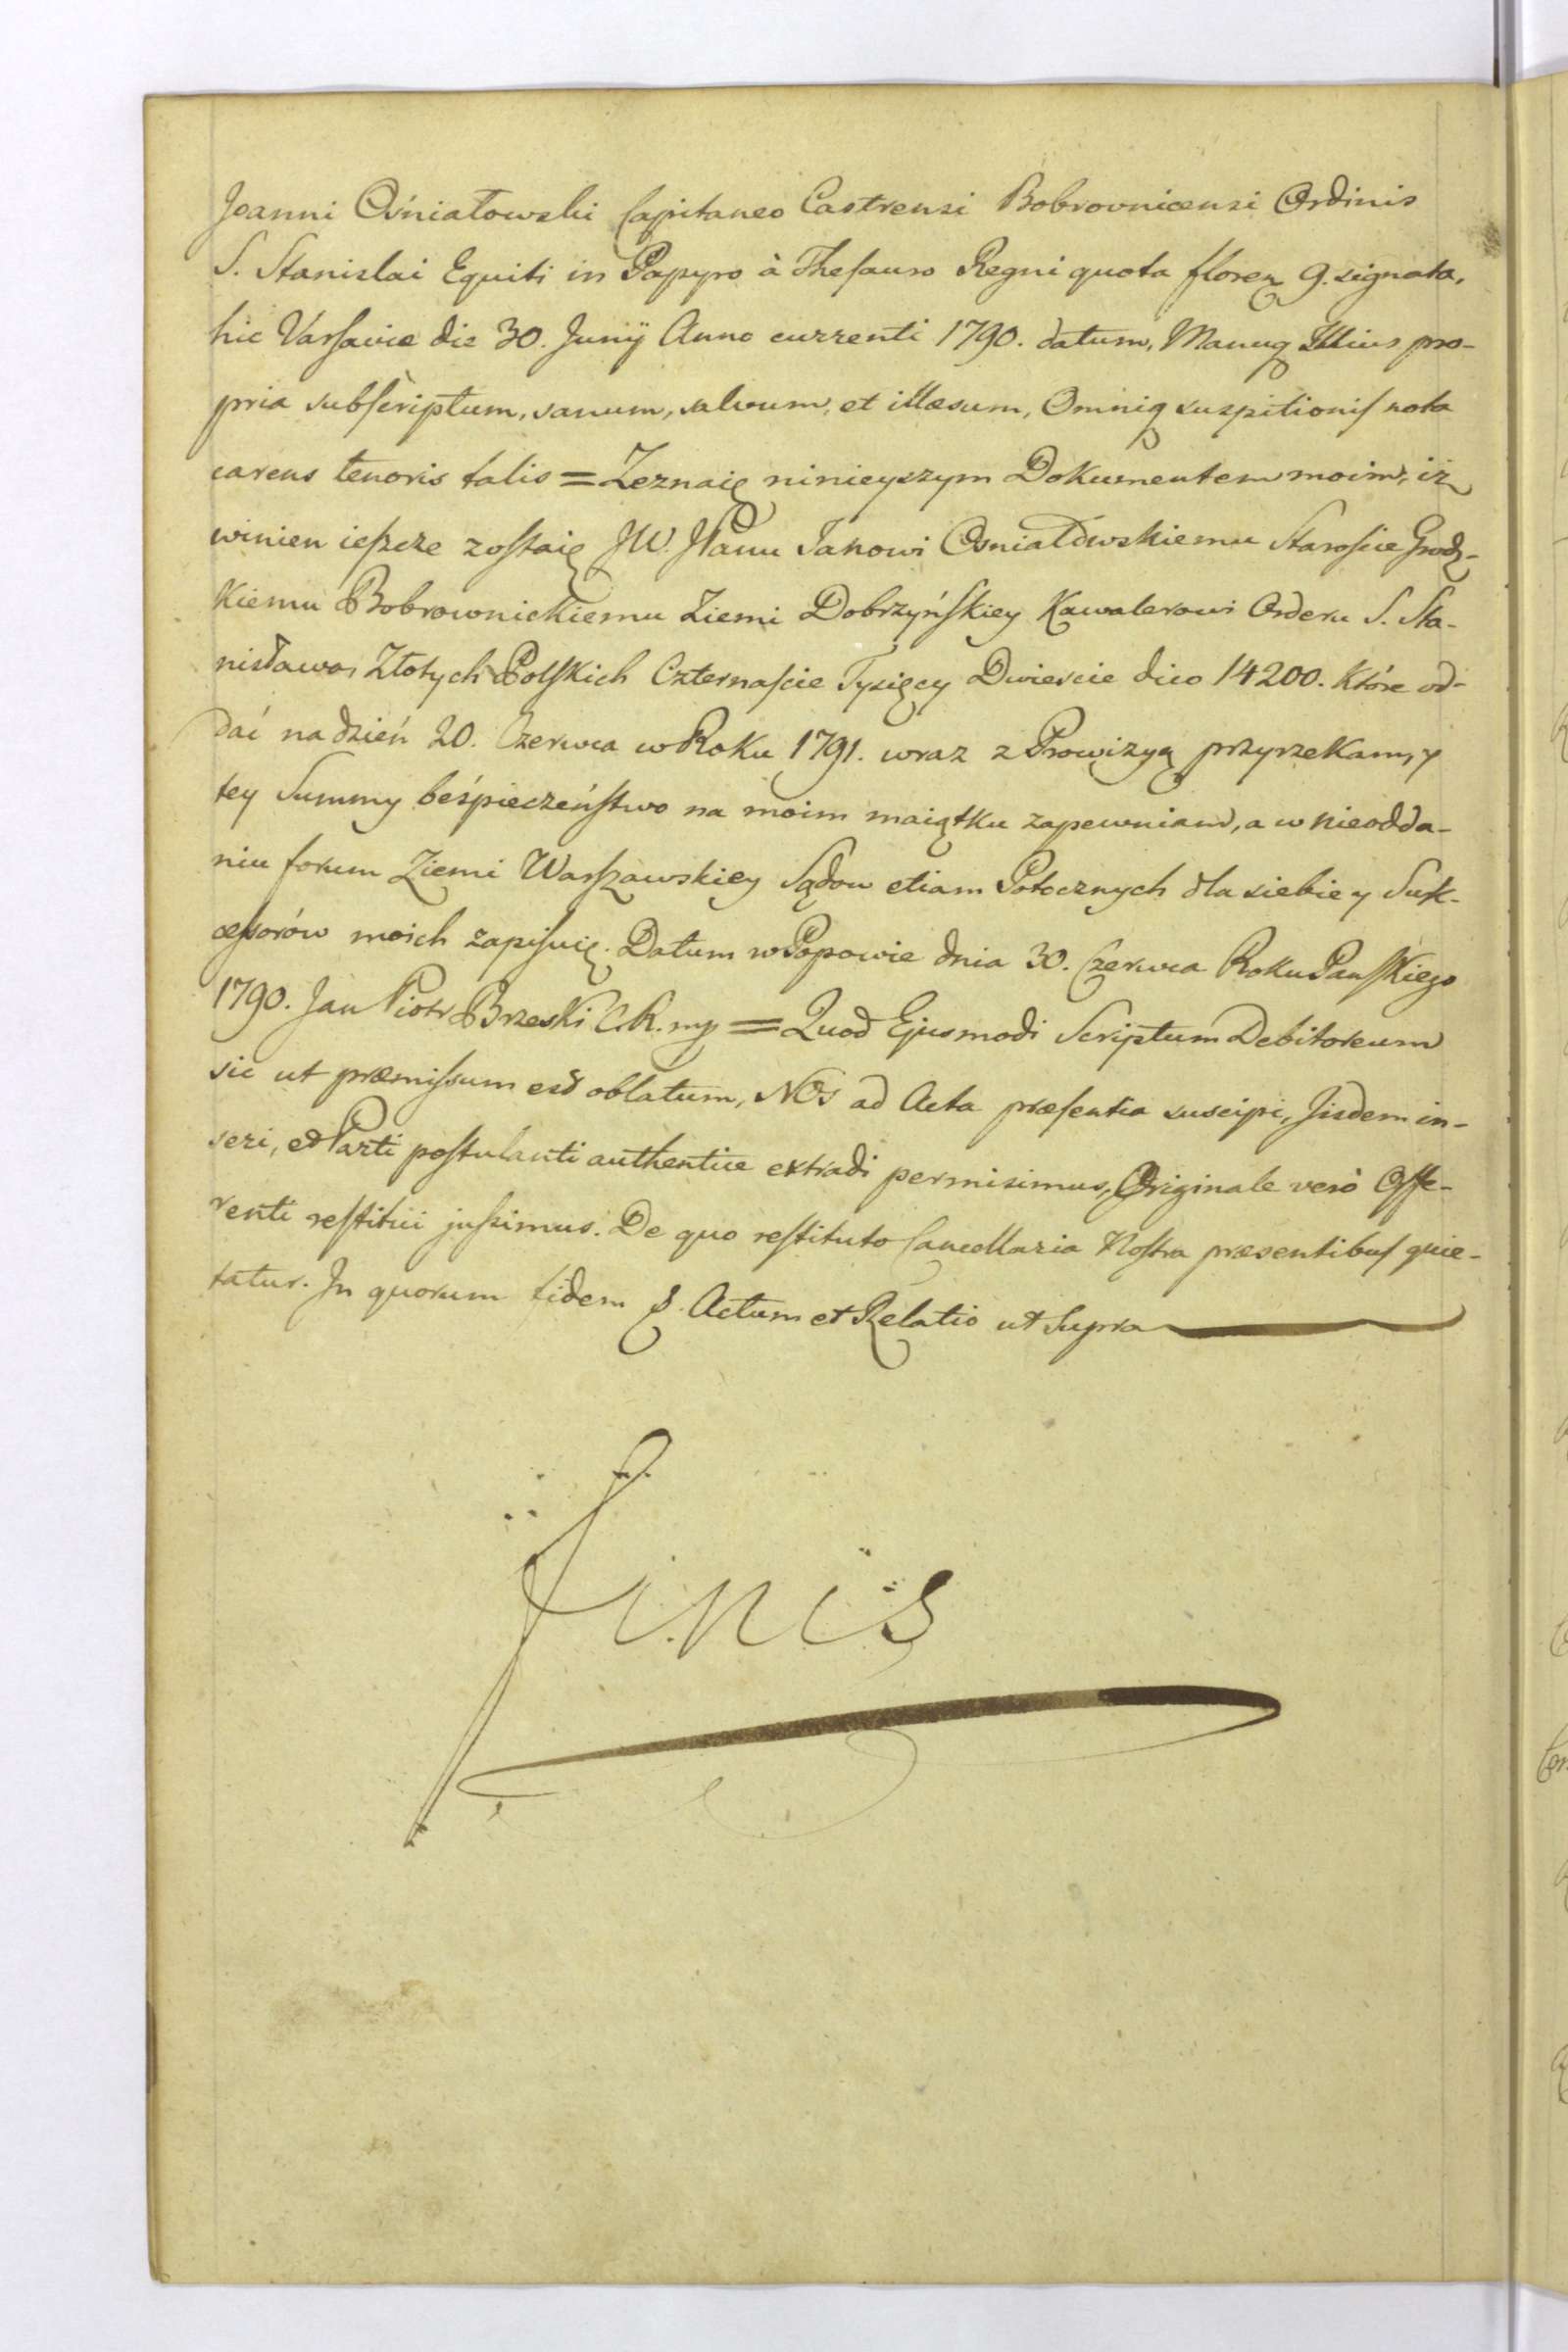 Joanni Ośniałowski Capitaneo Castrensi Bobrovnicensi Ordinis
S. Stanislai Equiti in Papyro à Thesauro Regni quota floren 9. signata,
hic Varsavie die 30. Junÿ Anno currenti 1790. datum, Manuq Illius pro-
pria subscriptum, sanum, salvum, et illæsum, Omniq suspitionis nota
carens tenoris talis = Zeznaię ninieyszym Dokumentem moim, iż
winien ieszcze zostaię JW. JPanu Janowi Osniałowskiemu Staroście Grodz-
kiemu Bobrownickiemu Ziemi Dobrzyńskiey Kawalerowi Orderu S. Sta-
nisława, Złotych Polskich Czternaście Tysięcy Dwieście dico 14200. które od-
dać na dzień 20. Czerwca w Roku 1791. wraz z Prowizyą przyrzekam, y
tey Summy beśpieczeństwo na moim maiątku zapewniam, a w nieodda-
niu forum Ziemi Warszawskiey Sądow etiam Potocznych dla siebie y Suk-
cessorów moich zapisuię. Datum w Popowie dnia 30. Czerwca Roku Pańskiego
1790. Jan Piotr Brzeski C.R. mp = Quod Ejusmodi Scriptum Debitoreum
sic ut præmissum est oblatum, NOs ad Acta præsentia suscipi, Jisdem in-
seri, et Parti postulanti authentice extradi permisimus, Originale verò Offe-
renti restitui jussimus. De quo restituto Cancellaria Nostra præsentibus quie-
tatur. In quorum fidem &. Actum et Relatio ut Supra
Finis